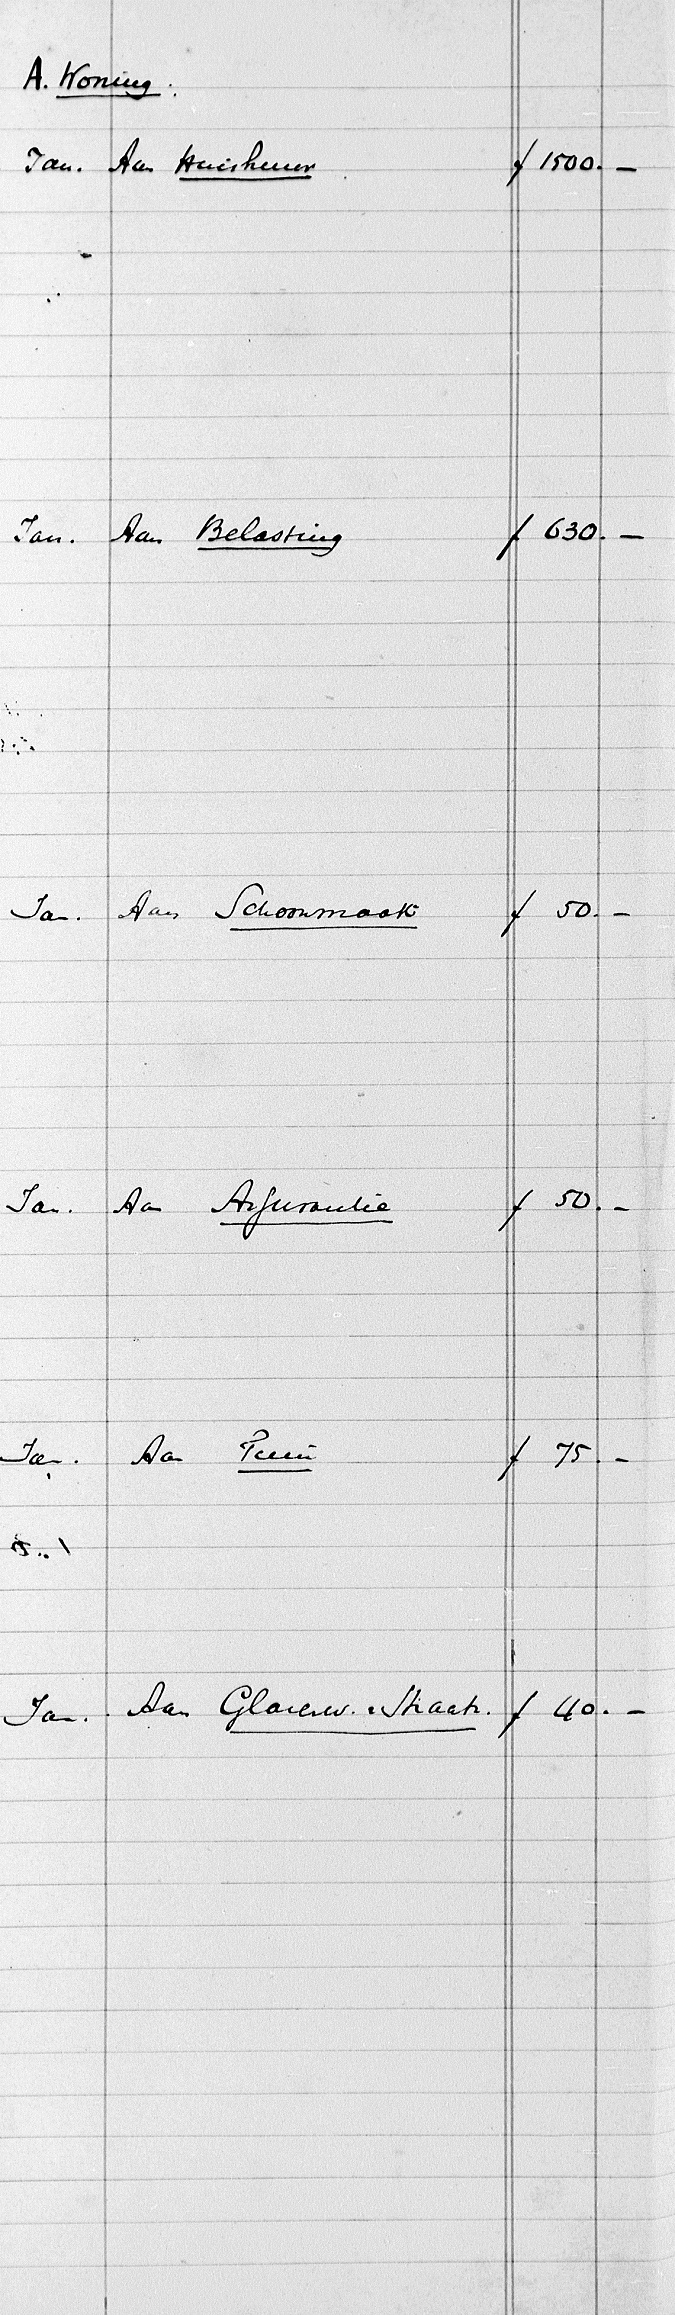 A. Woning.
Jan. Aan Huishuur f 1500. —
Jan. Aan Belasting f 630. —
Jan. Aan Schoonmaak f 50. —
Jan. Aan Assurantie f 50. —
Jan. Aan Tuin f 75. —
Jan. Aan Glazenw. f 40. —